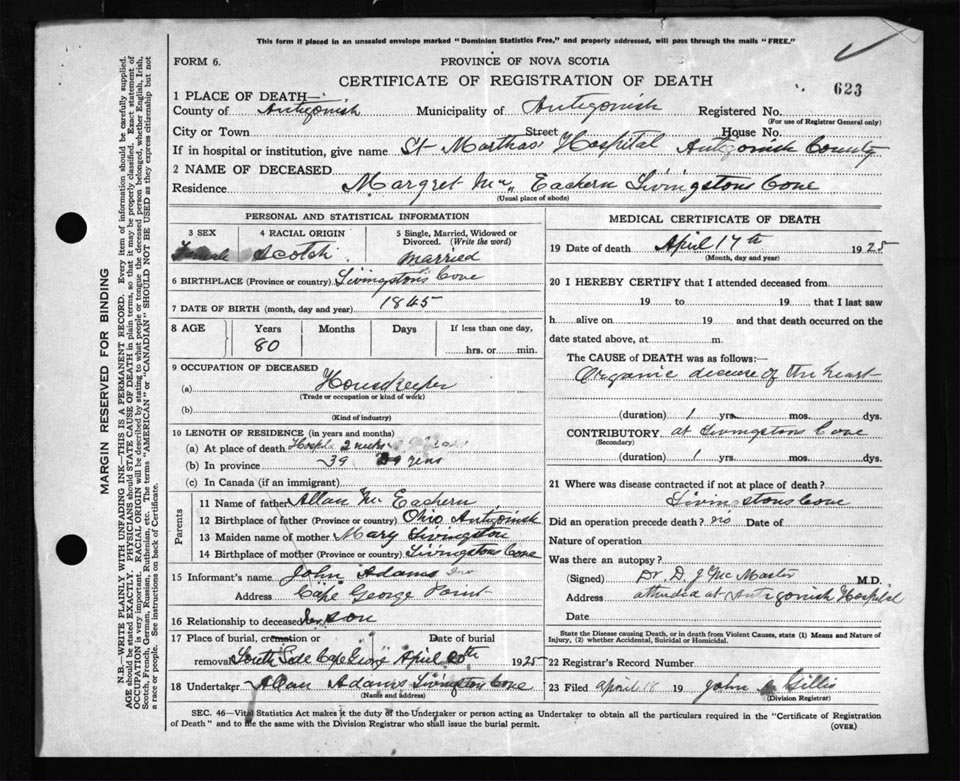 This form if placed in an unsealed envelope marked "Dominion Statistics Free," and properly addressed, will pass through the mails "FREE."
FORM 6.
PROVINCE OF NOVA SCOTIA
CERTIFICATE OF REGISTRATION OF DEATH
623
1 PLACE OF DEATH—
County of Antigonish Municipality of Antigonish Registered No.
(For use of Registrar General only)
City or Town Street House No.
If in hospital or institution, give name St Marthas Hospital Antigonish County
2 NAME OF DECEASED
Residence Margret Mc Eachern Livingstons Cove
(Usual place of abode)
MARGIN RESERVED FOR BINDING
N.B.—WRITE PLAINLY WITH UNFADING INK—THIS IS A PERMANENT RECORD. Every item of information should be carefully supplied.
AGE should be stated EXACTLY. PHYSICIANS should STATE CAUSE OF DEATH in plain terms, so that it may be properly classified. Exact statement of
OCCUPATION is very important. RACIAL ORIGIN will be described by stating to what people or tongue the deceased person belonged, whether English, Irish,
Scotch, French, German, Russian, Ruthenian, etc. The terms "AMERICAN" or "CANADIAN" SHOULD NOT BE USED as they express citizenship but not
a race or people. See instructions on back of Certificate.
PERSONAL AND STATISTICAL INFORMATION
3 SEX 4 RACIAL ORIGIN 5 Single, Married, Widowed or
Divorced. (Write the word)
Female Scotch Married
6 BIRTHPLACE (Province or country) Livingston's Cove
7 DATE OF BIRTH (month, day and year) 1845
8 AGE Years Months Days If less than one day,
80 hrs. or min.
9 OCCUPATION OF DECEASED
(a) Housekeeper
(Trade or occupation or kind of work)
(b)
(Kind of industry)
10 LENGTH OF RESIDENCE (in years and months)
(a) At place of death Hospital 2 weeks
(b) In province 39
(c) In Canada (if an immigrant)
Parents
11 Name of father Allan Mc Eachern
12 Birthplace of father (Province or country) Ohio Antigonish
13 Maiden name of mother Mary Livingston
14 Birthplace of mother (Province or country) Livingstons Cove
15 Informant's name John Adams
Address Cape George Point
16 Relationship to deceased son
17 Place of burial, cremation or Date of burial
removal South Side Cape George April 20th 1925
18 Undertaker Allan Adams Livingston Cove
(Name and address)
MEDICAL CERTIFICATE OF DEATH
19 Date of death April 17th 1925
(Month, day and year)
20 I HEREBY CERTIFY that I attended deceased from
19 to 19 that I last saw
h alive on 19 and that death occurred on the
date stated above, at m.
The CAUSE of DEATH was as follows:—
Organic disease of the heart
(duration) 1 yrs. mos. dys.
CONTRIBUTORY at Livingstons Cove
(Secondary)
(duration) 1 yrs. mos. dys.
21 Where was disease contracted if not at place of death?
Livingstons Cove
Did an operation precede death? no Date of
Nature of operation
Was there an autopsy?
(Signed) Dr D J McMaster M.D.
Address attended at Antigonish Hospital
Date
State the Disease causing Death, or in death from Violent Causes, state (1) Means and Nature of
Injury, (2) whether Accidental, Suicidal or Homicidal.
22 Registrar's Record Number
23 Filed April 18 19 John Gillis
(Division Registrar)
SEC. 46—Vital Statistics Act makes it the duty of the Undertaker or person acting as Undertaker to obtain all the particulars required in the "Certificate of Registration
of Death" and to file the same with the Division Registrar who shall issue the burial permit.
(OVER)